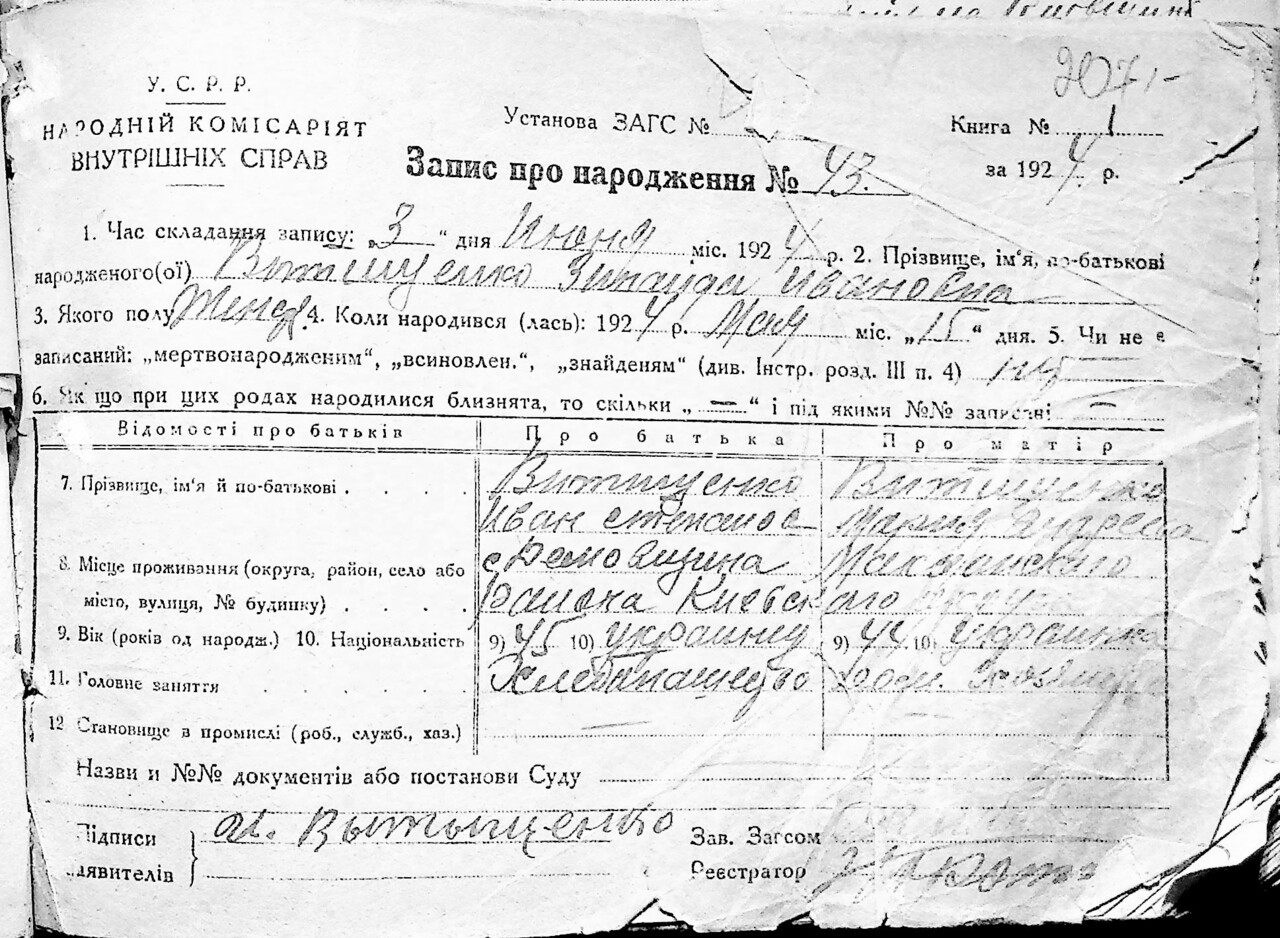 207-
У. С. Р. Р.
НАРОДНІЙ КОМІСАРІЯТ
ВНУТРІШНІХ СПРАВ
Установа ЗАГС №
Книга № 1
за 1924 р.
Запис про народження № 43.
1. Час складання запису: „3“ дня Июня міс. 1924 р. 2. Прізвище, ім'я, по-батькові
народженого(ої) Витищенко Зинаида Ивановна
3. Якого полу Женск. 4. Коли народився (лась): 1924 р. Мая міс. „15“ дня. 5. Чи не є
записаний: „мертвонародженим“, „всиновлен.“, „знайденям“ (див. Інстр. розд. III п. 4) нет
6. Як що при цих родах народилися близнята, то скільки „—“ і під якими №№ записані —
Відомості про батьків Про батька Про матір
7. Прізвище, ім'я й по-батькові . . . . Витищенко Витищенко
Иван Степанов Мария Андреева
8. Місце проживання (округа, район, село або с
місто, вулиця, № будинку) . . . . района Киевского
9. Вік (років од народж.) 10. Національність 9) 45 10) украинец 9) 44 10) украинка
11. Головне заняття . . . . . . Хлебопашество
12 Становище в промислі (роб., служб., хаз.) —
Назви и №№ документів або постанови Суду
Підписи
заявителів
И. Вытыщенко
Зав. Загсом
Реєстратор